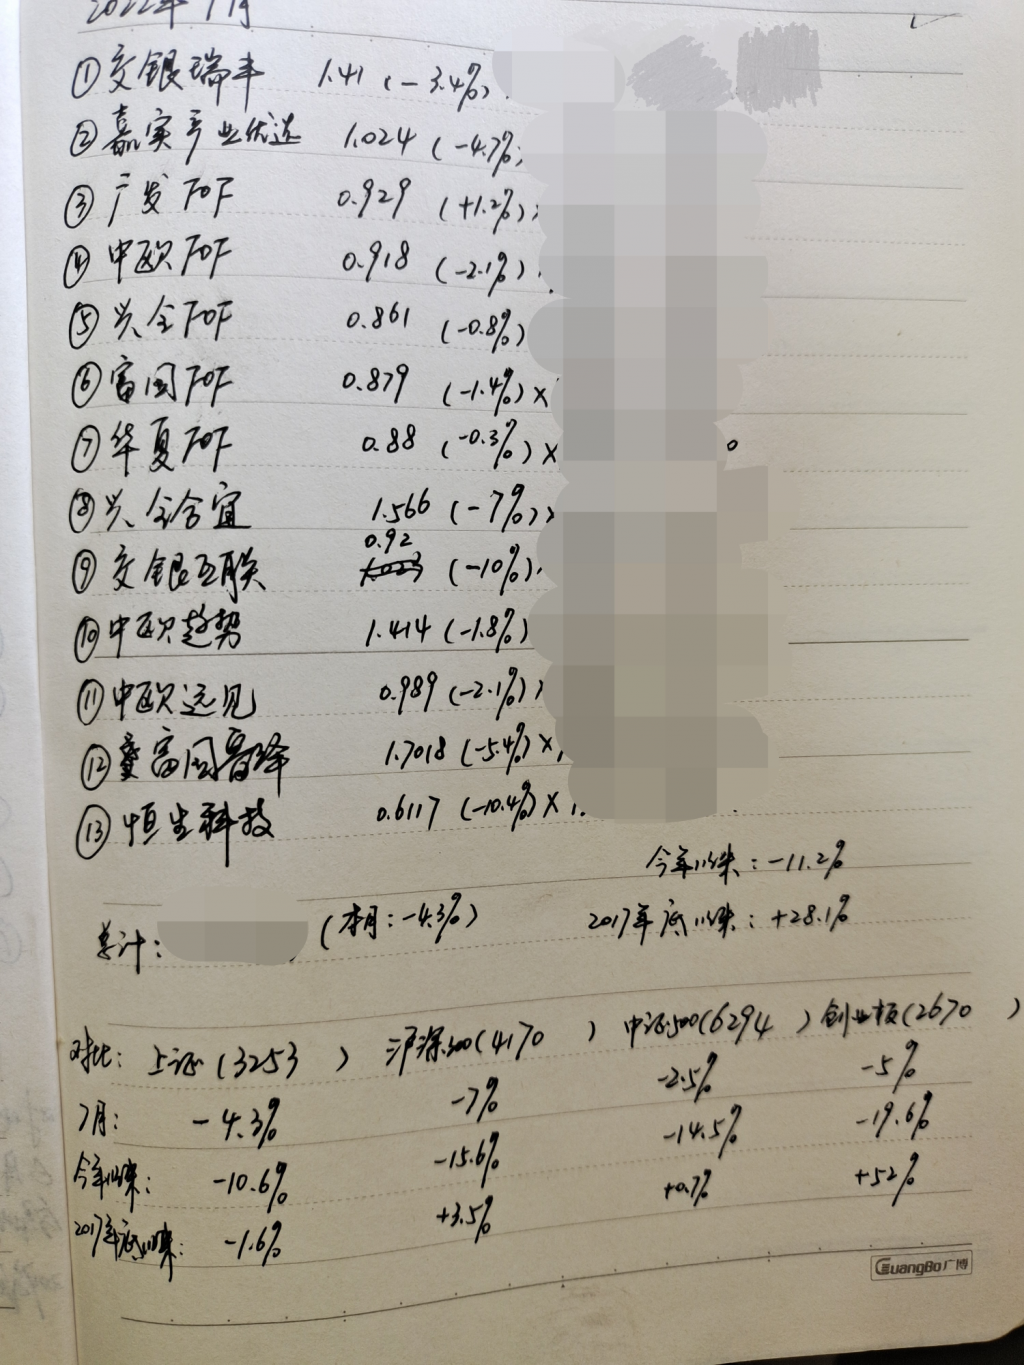 2022年7月
①交银瑞丰 1.41 (-3.4%)
②嘉实产业优选 1.024 (-4.7%)
③广发FOF 0.929 (+1.2%)
④中欧FOF 0.918 (-2.1%)
⑤兴全FOF 0.861 (-0.8%)
⑥富国FOF 0.879 (-1.4%)×
⑦华夏FOF 0.88 (-0.3%)×
⑧兴全合宜 1.566 (-7%)
⑨交银互联 0.92 (-10%)
⑩中欧趋势 1.414 (-1.8%)
⑪中欧远见 0.989 (-2.1%)
⑫富国 1.7018 (-5.4%)×
⑬恒生科技 0.6117 (-10.4%)×1.
今年以来:-11.2%
总计: (本月:-4.3%) 2017年底以来:+28.1%
对比: 上证(3253 ) 沪深300(4170 ) 中证500(6294 ) 创业板(2670 )
7月: -4.3% -7% -2.5% -5%
今年以来: -10.6% -15.6% -14.5% -19.6%
2017年底以来: -1.6% +3.5% +0.7% +52%
GuangBo广博